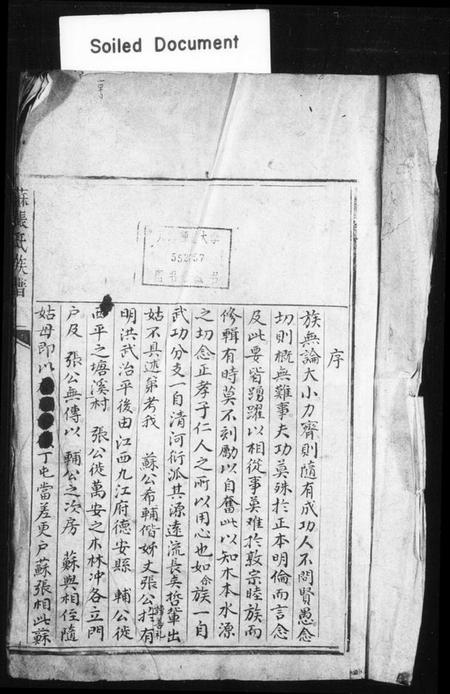 Soiled Document
蘇張氏族譜
552757
序
族無論大小力齊則隨有成功人不問賢愚念
切則概無難事夫功莫殊於正本明倫而言念
及此要皆踴躍以相從事莫难於敦宗睦族而
修輯有時莫不刻勵以自奮此以知木本水源
之切念正孝子仁人之所以用心也如合族一自
武功分支一自清河衍派其源遠流長英哲輩出
姑不具述第考我 蘇公布輔偕姊丈張公 有
明洪武治平後由江西九江府德安縣 輔公徙
西平之塘溪村 張公徙萬安之木林冲各立門
户及 張公無傳以 輔公之次房 蘇與相任隨
姑母即以 丁屯當差更户蘇張相此蘇